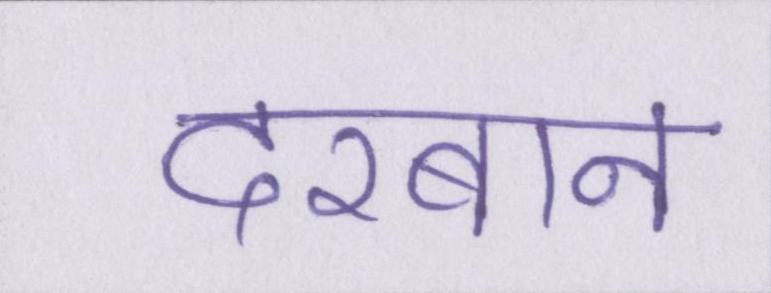 दरबान